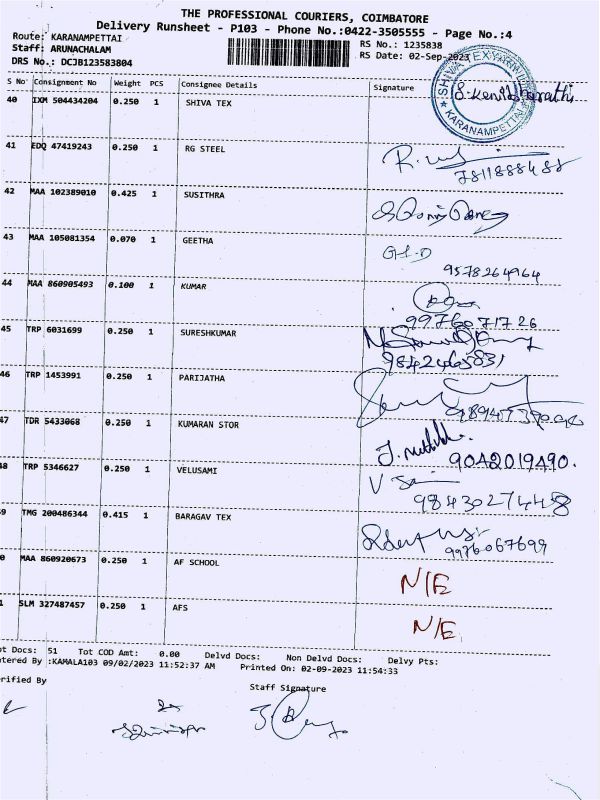 THE PROFESSIONAL COURIERS, COIMBATORE
Delivery Runsheet - P103 - Phone No.:0422-3505555 - Page No.:4
Route: KARANAMPETTAI
Staff: ARUNACHALAM
DRS No.: DCJB123583804
RS No.: 1235838
RS Date: 02-Sep-2023
S No Consignment No Weight PCS Consignee Details Signature
40 IXM 504434204 0.250 1 SHIVA TEX
SHIVA TEX
KARANAMPETTAI
41 EDQ 47419243 0.250 1 RG STEEL
42 MAA 102389010 0.425 1 SUSITHRA
43 MAA 105081354 0.070 1 GEETHA
9578264964
44 MAA 860905493 0.100 1 KUMAR
9976071726
45 TRP 6031699 0.250 1 SURESHKUMAR
9842465831
46 TRP 1453991 0.250 1 PARIJATHA
47 TDR 5433068 0.250 1 KUMARAN STOR
9042019490.
48 TRP 5346627 0.250 1 VELUSAMI
9843027448
9 TMG 200486344 0.415 1 BARAGAV TEX
9976067699
0 MAA 860920673 0.250 1 AF SCHOOL N/E
1 SLM 327487457 0.250 1 AFS N/E
ot Docs: 51 Tot COD Amt: 0.00 Delvd Docs: Non Delvd Docs: Delvy Pts:
ntered By :KAMALA103 09/02/2023 11:52:37 AM Printed On: 02-09-2023 11:54:33
erified By Staff Signature